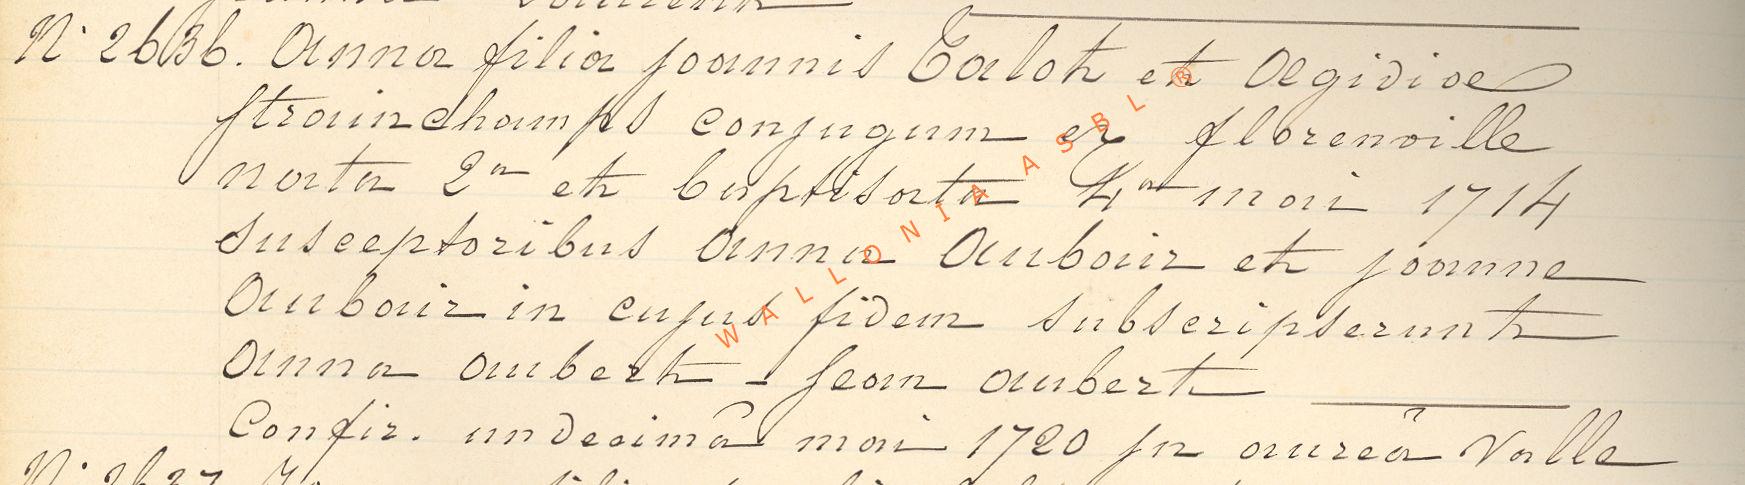 N° 2636. Anna filia joannis Talot et Aegidiae
strainchamps conjugum ex florenville
nata 2ª et baptisata 4ª mai 1714
susceptoribus Anna Aubair et joanne
Aubair in cujus fidem subscripserunt
Anna aubert - Jean aubert
Confir. undecimâ mai 1720 jn aureâ Valle
N° 2637
WALLONIA ASBL ®